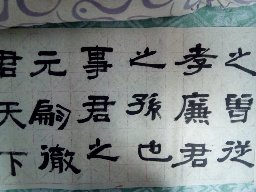 之曾從
孝廉君
之孫也
事君之
元嗣徹
君天下